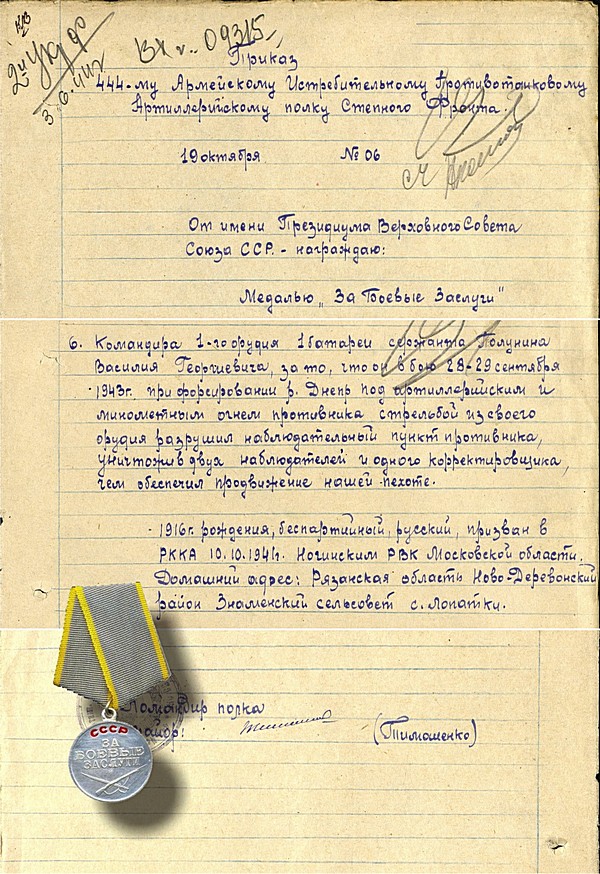 2й Укд 90
3.6.44г
Вх. 09315
Приказ
444-му Армейскому Истребительному Противотанковому
Артиллерийскому полку Степного Фронта.
19 октября № 06
От имени Президиума Верховного Совета
Союза ССР. - награждаю:
Медалью „За Боевые Заслуги"
6. Командира 1-го орудия 1 батареи сержанта Полунина
Василия Георгиевича, за то, что он в бою 28-29 сентября
1943г. при форсировании р. Днепр под артиллерийским и
минометным огнем противника стрельбой из своего
орудия разрушил наблюдательный пункт противника,
уничтожив двух наблюдателей и одного корректировщика,
чем обеспечил продвижение нашей пехоте.
1916г. рождения, беспартийный, русский, призван в
РККА 10.10.1941г. Ногинским РВК Московской области.
Домашний адрес: Рязанская область Ново-Деревенский
район Знаменский сельсовет с. Лопатку.
Командир полка
майор: (Тимошенко)
СССР
ЗА
БОЕВЫЕ
ЗАСЛУГИ